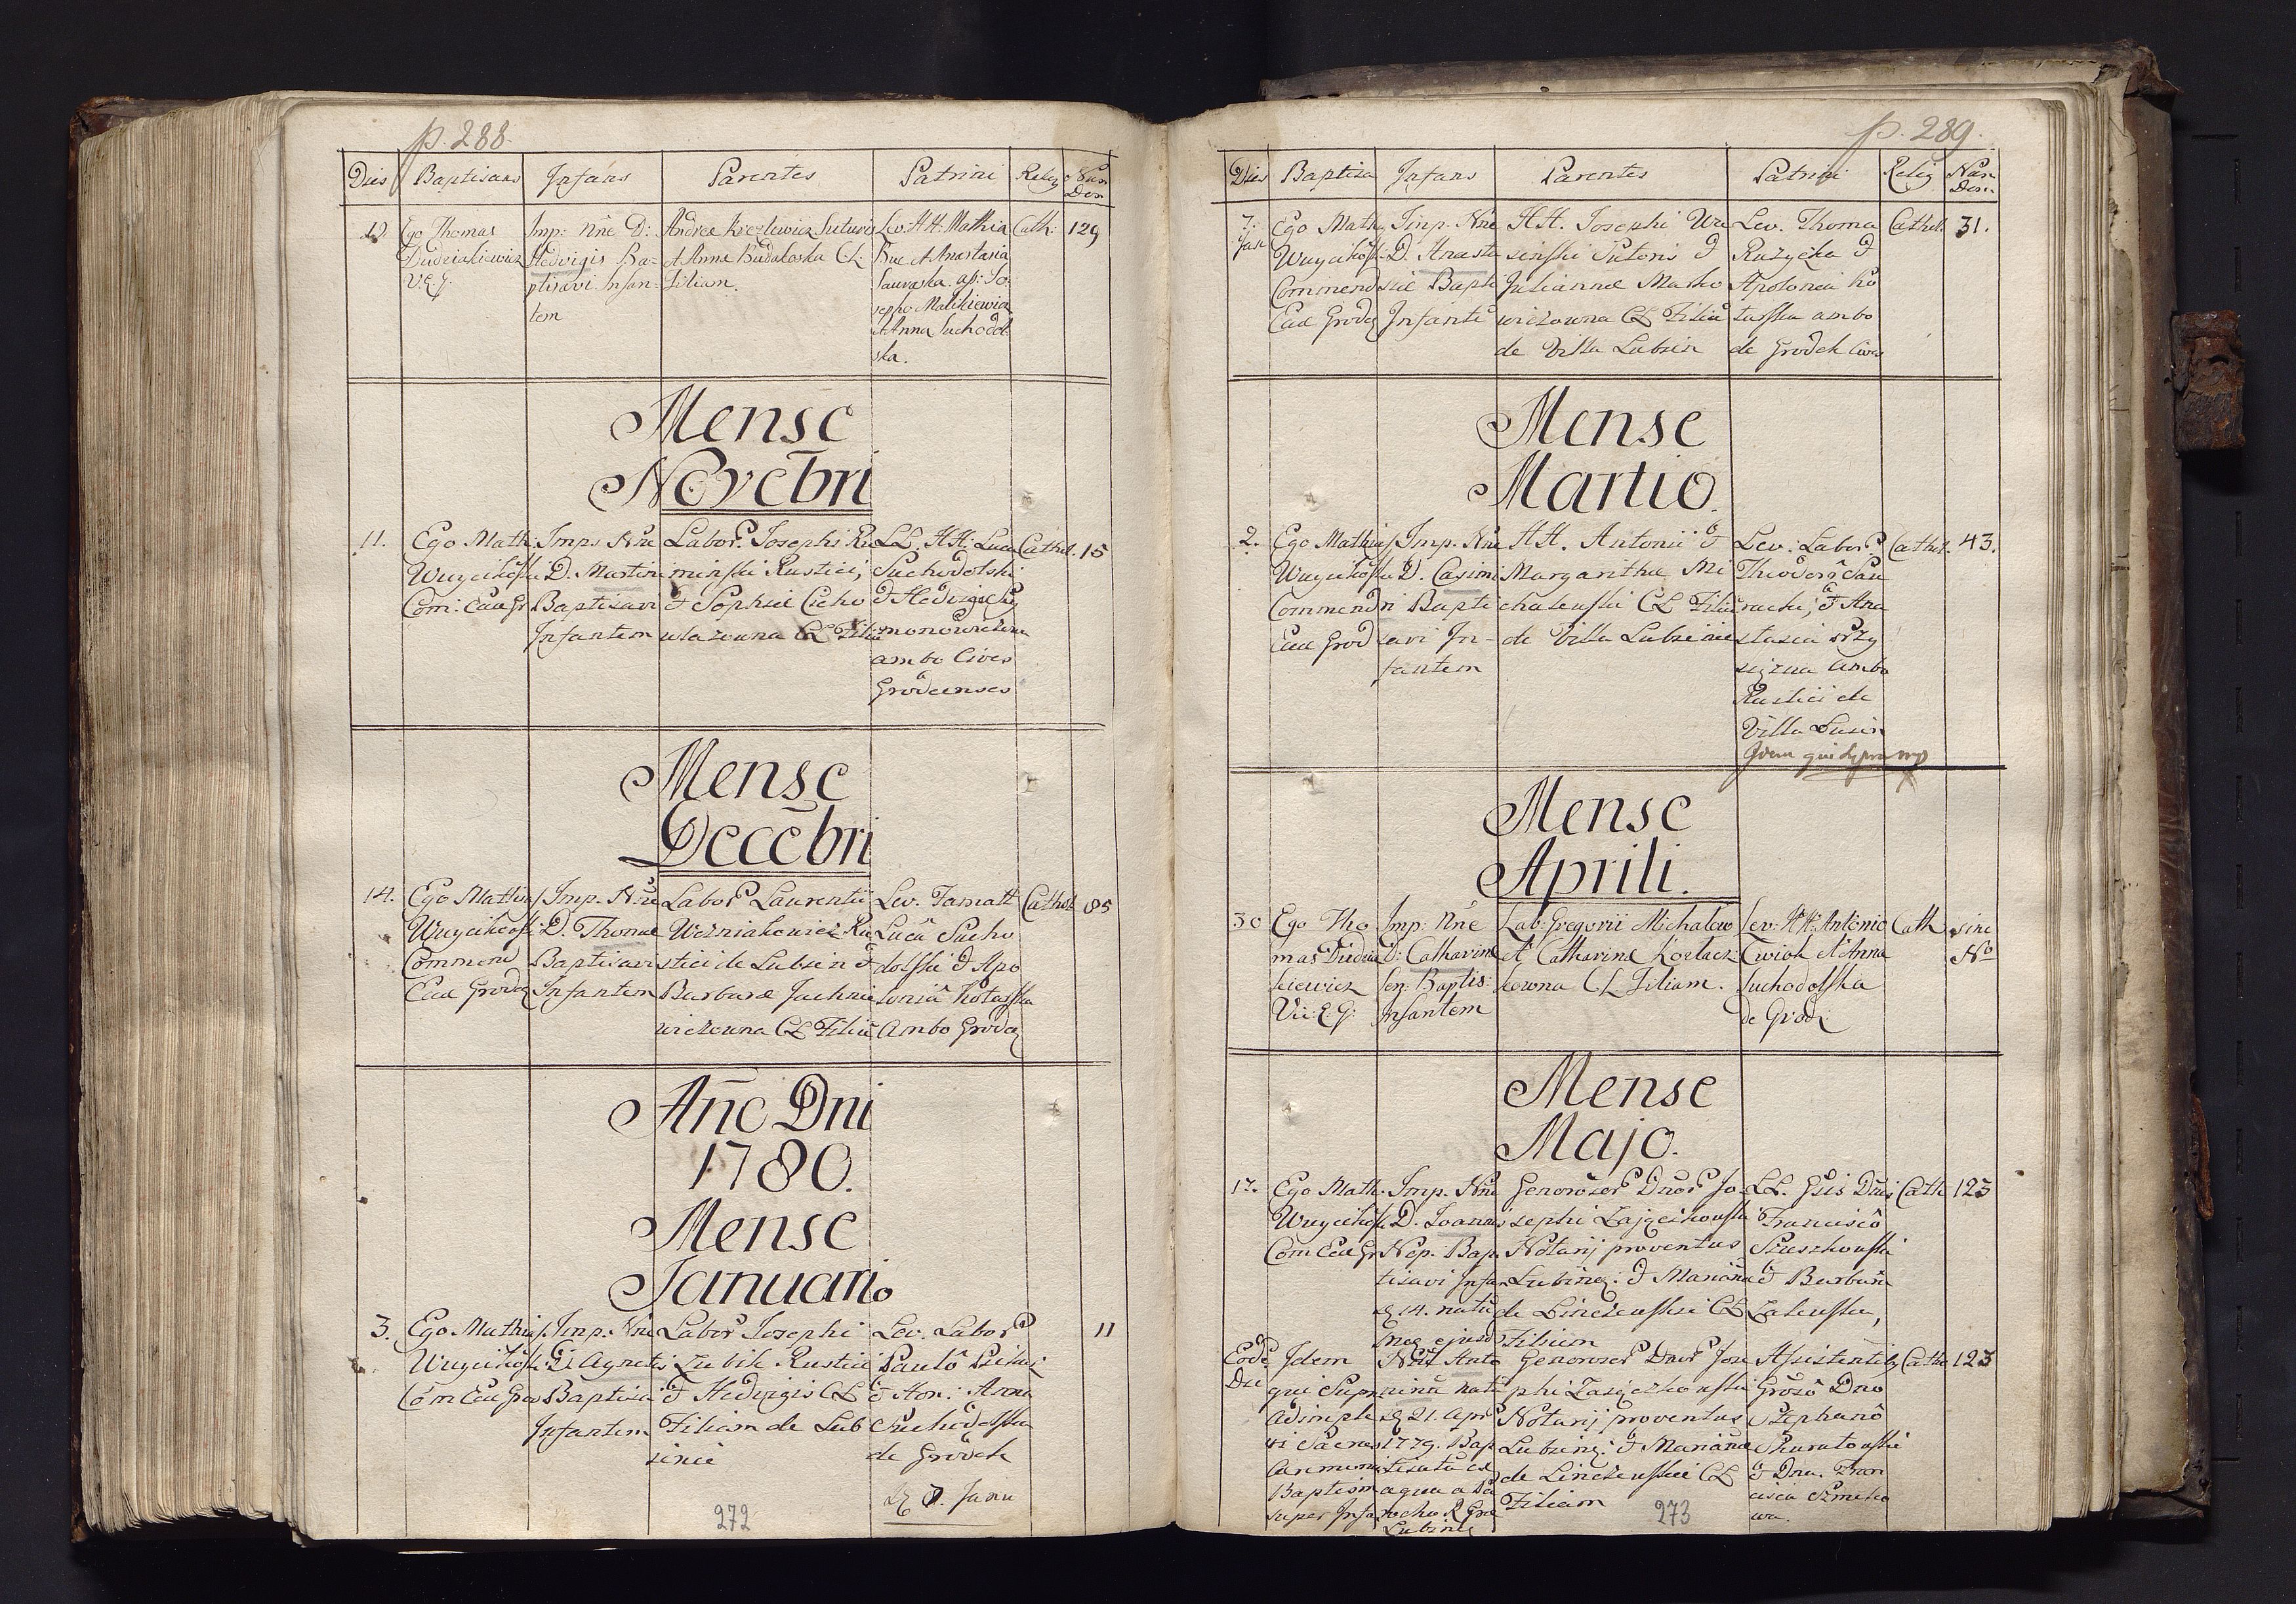 p. 288.
Dies Baptisans Infans Parentes Patrini Relig Num Dom
Ego Thomas
VEG.
Imp: Nnē D:
Hedvigis Ba-
ptisavi Infan-
tem
Andreæ
et Anna Budaloska CL.
Filiam.
Lev: HH: Mathia
et Anastasia
as: Jo-
sepho Malikiewicz
et Anna Suchodol
ska.
Cath: 129
Mense
Novēbri
11.
Ego Math:
Wuycikoski
Com: Eccæ Gr
Imp. Nne
D. Martini
Baptisavi
Infantem
Labor. Josephi Ru
minski Rustici,
et Sophiæ Cicho
CL Filiū
LL. HH: Luca
Suchodolski
et Hedvige Szy
monowiczowa
ambo Cives
Grodecenses
Cathol. 15
Mense
Decēbri
14.
Ego Mathias
Wuycikoski
Commend
Eccæ Grodeq
Imp. Nne
D. Thomæ
Baptisavi
Infantem
Labor Laurentii
Wozniakowicz Ru
stici de Lubzin et
Barbaræ Jachni
wiczowna CL Filiū
Lev. Famatt
Lucâ Sucho
dolski et Apo
loniâ Kotarska
Ambo Grodeq
Cathol 85
Añō Dni
1780.
Mense
Januario
3.
Ego Mathias
Wuycikoski
Com Eccæ Gro
Imp. Nne
D. Agnetis
Baptisavi
Infantem
Labor Josephi
Zubik Rustici
et Hedvigis CL
Filiam de Lub
zinie
Lev. Labor
Paulô
et Hon: Anna
Suchodolska
de Grodek
D 7. Janu
11
272
p. 289.
Dies Baptisa Infans Parentes Patrini Relig Num Dom
7.
Jan
Ego Math
Wuycikoski
Commend
Eccæ Grodeq
Imp. Nne
D. Anasta
siæ Bapti
Infantē
HH. Josephi Wa
sinski Sutoris et
Juliannæ Matko
wiczowna CL Filiā
de Villa Lubzin
Lev. Thoma
Ruzycka et
Apolonia Ko
tarska ambo
de Grodek Cives
Cathol. 31.
Mense
Martio.
2.
Ego Mathias
Wuycikoski
Commend
Eccæ Grod
Imp. Nne
D. Casimi
ri Bapti
savi In-
fantem
HH. Antonii et
Margarithæ Mi
chalenski CL Filiū
de Villa Lubzinie
Lev: Labor
Theodorô
et Ana
stasia Przy
ambo
Rustici de
Villa Lusin
Idem qui supra mp
Cathol. 43.
Mense
Aprili.
30
Ego Tho
mas Dudzia
kiewicz
Vic: E G:
Imp: Nnē
D: Catharinæ
Sen: Baptis:
Infantem
Lab: Gregorii Michalow
et Catharinæ Korlacz
kowna CL Filiam.
Lev: HH: Antonio
Cwiok et Anna
Suchodolska
de Grod:
Cath sine
No
Mense
Majo.
17.
Ego Math.
Wuycikoski
Com Eccæ Gr
Imp. Nne
D. Joannis
Nep. Bap
tisavi Infan
D 14. natū
mens ejusd
Generosor Dnor Jo
sephi Zajączkowski
Notarij proventus
Lubzineq: et Mariannæ
de Linczewskie CL
Filium
LL. Gsis Dnis
Francisco
Szuszkowski
et Barbara
Zalewska,
Cath 123
Eodē
Die
Idem
qui Supra
adimple
vi Sacras
Cæremoni
Baptism
super Infa
Nne Anto
ninā natā
D 21. Apr
1779. Bap
tisatā ex
aqua a Pa
rocho E Gra
Lubzineq
Generosor Dnor Jose
phi Zajączkowski
Notarij proventus
Lubzineq: et Mariannæ
de Linczewskie CL
Filiam
Assistentibq
Grosô Dno
Stephanô
et Dna Fran
cisca
wa.
Catho 123
273